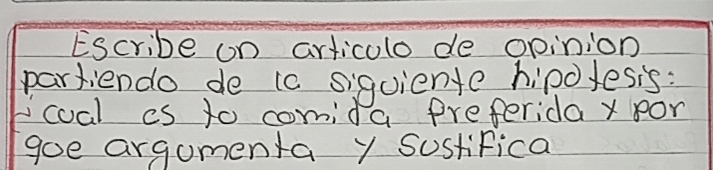 Escribe un articulo de opinion
partiendo de la siguiente hipotesis:
¿cual es tu comida preferida y por
que argumenta y sustifica